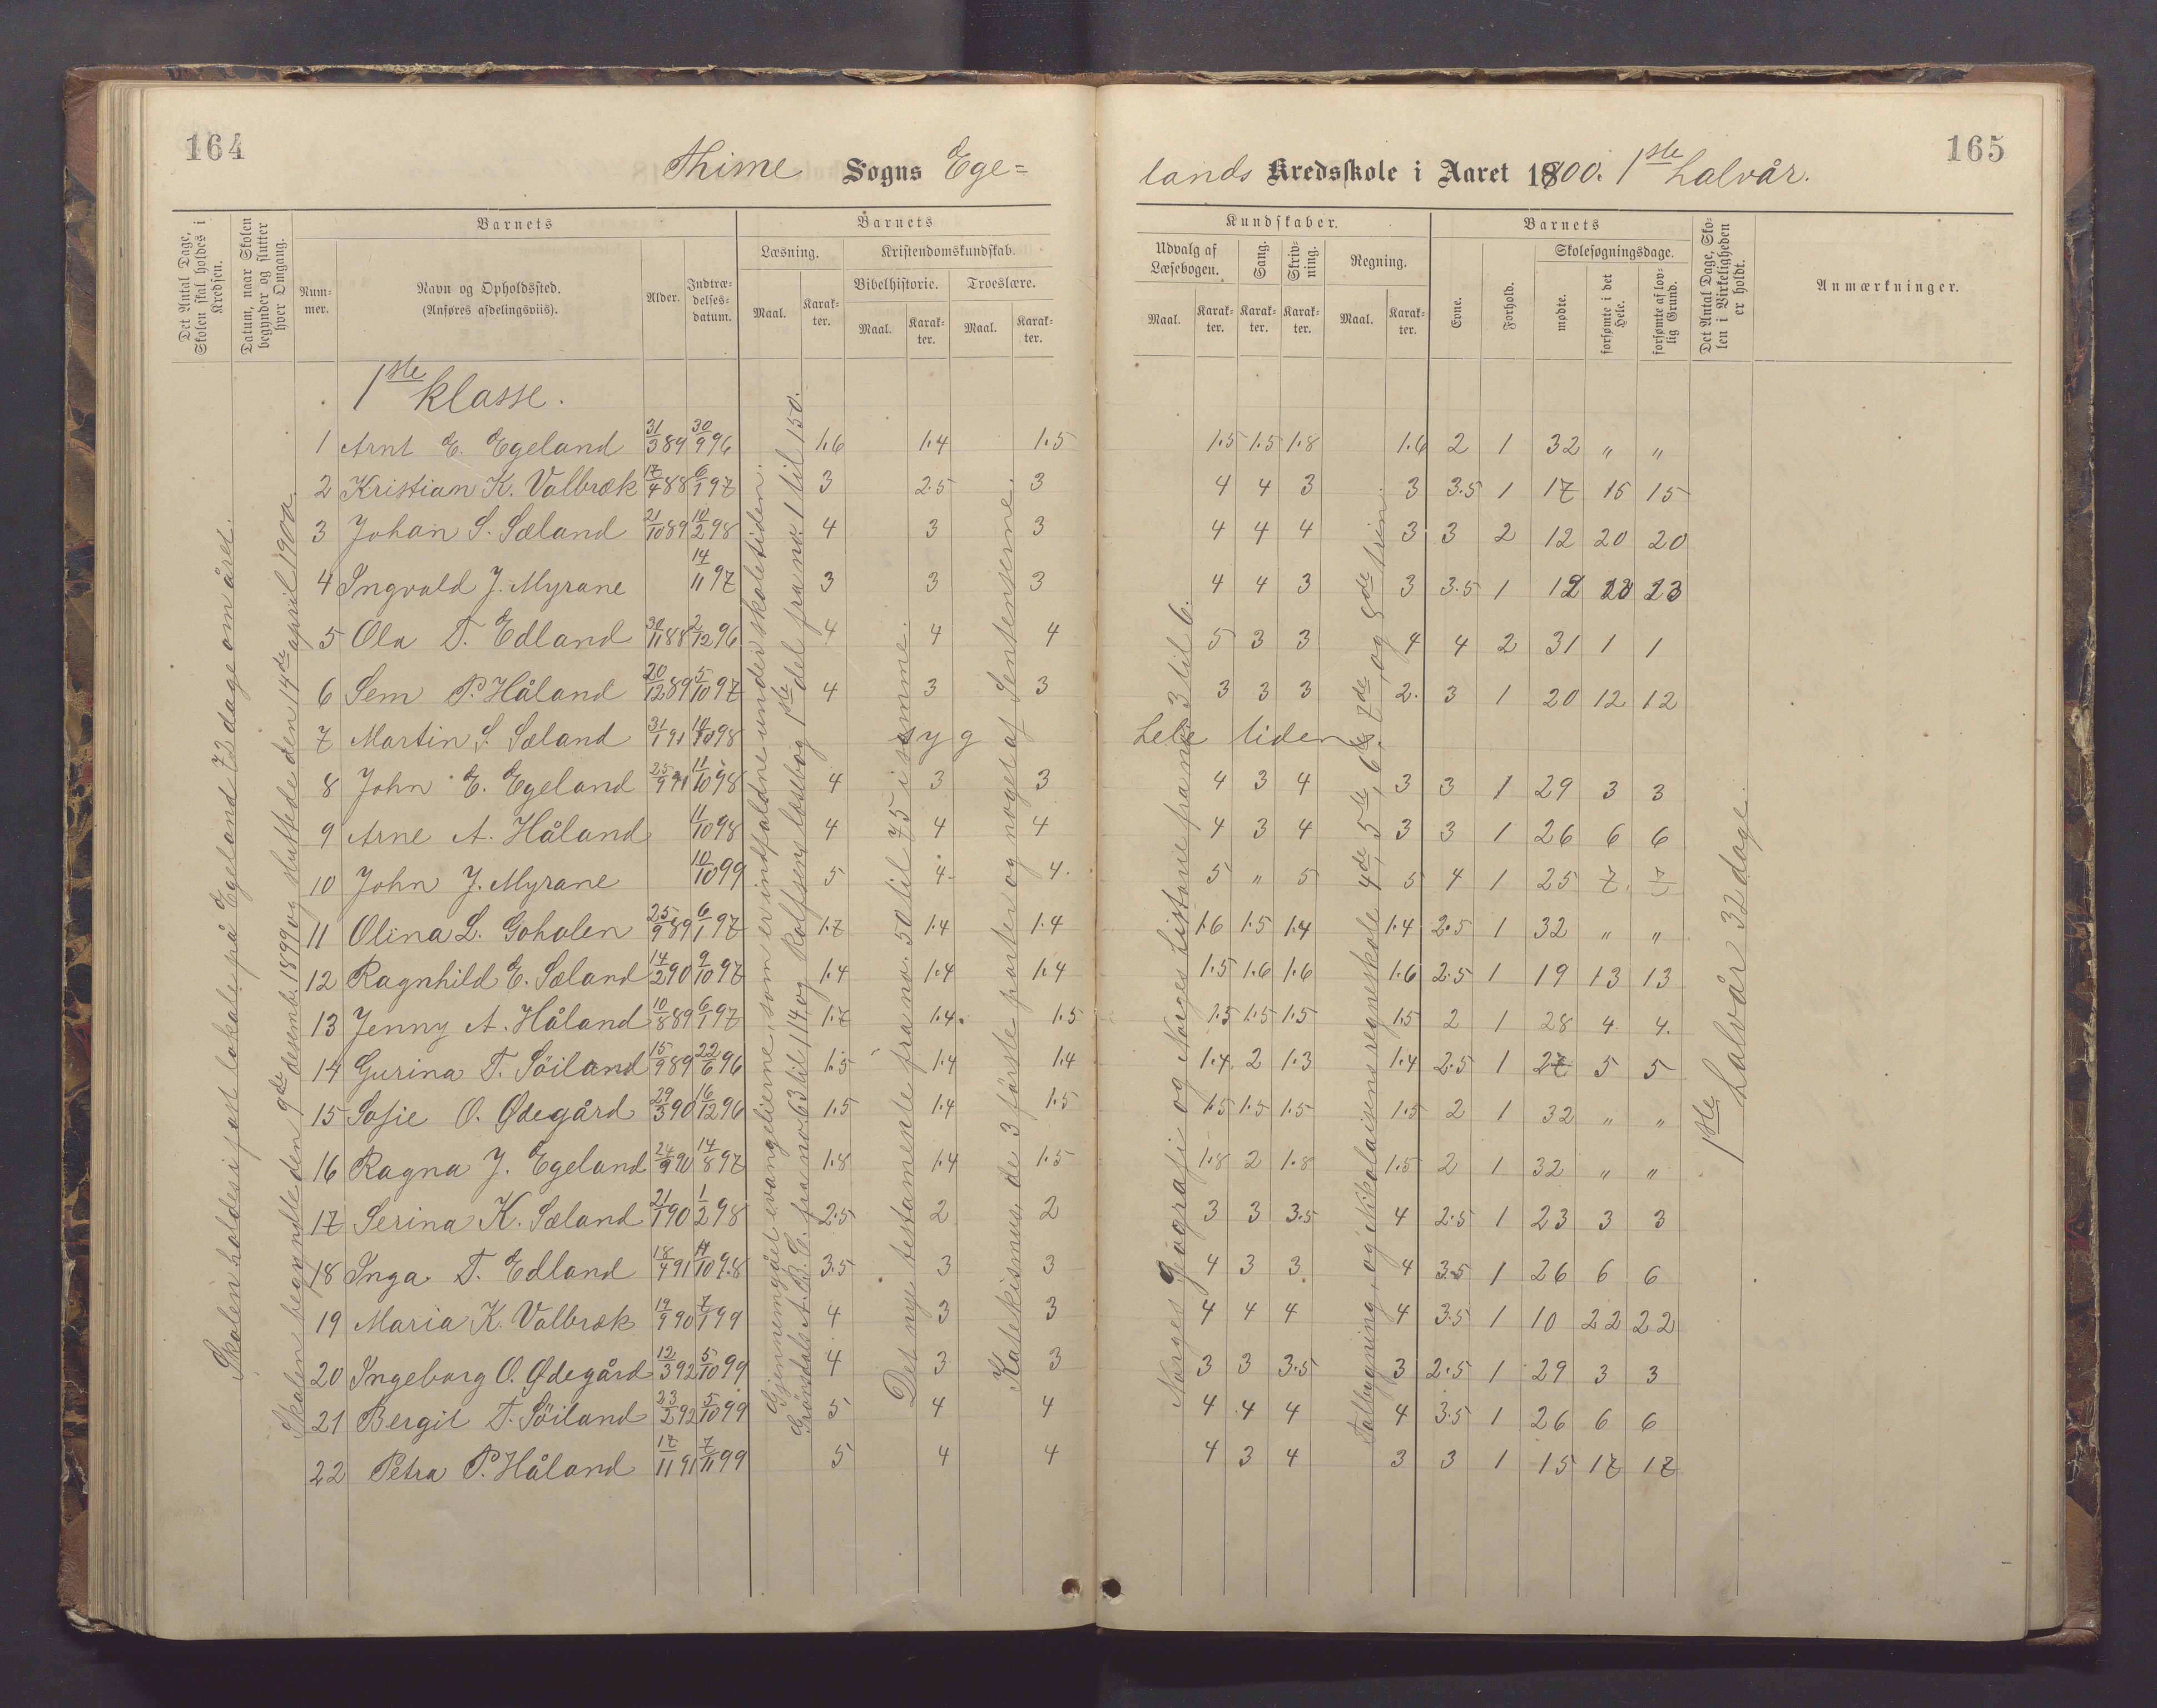 164
Thime Sogns Ege=
lands Kredsskole i Aaret 1900. 1ste halvår.
165
Det Antal Dage, Skolen skal holdes i Kredsen.
Datum, naar Skolen begynder og slutter hver Omgang.
Barnets
Nummer.
Navn og Opholdssted.
(Anføres afdelingsviis).
Alder.
Indtrædelsesdatum.
Barnets
Læsning.
Maal.
Karakter.
Kristendomskundskab.
Bibelhistorie.
Maal.
Karakter.
Troeslære.
Maal.
Karakter.
Kundskaber.
Udvalg af Læsebogen.
Maal.
Karakter.
Sang.
Karakter.
Skrivning.
Karakter.
Regning.
Maal.
Karakter.
Barnets
Evne.
Forhold.
Skolesøgningsdage.
mødte.
forsømte i det Hele.
forsømte af lovlig Grund.
Det Antal Dage, Skolen i Virkeligheden er holdt.
Anmærkninger.
Skolen holdes i fast lokale på Egeland 72 dage om året.
Skolen begyndte den 9de desemb. 1899 og sluttede den 14de april 1900.
Gjennemgået evangelierne, som er indfaldne under skoletiden.
Grøndals A.B.C. fra no 63 til 114 og Rolfsens læsebog 1ste del fra no. 1 til 150.
Det nye testamente fra no. 50 til 75 i samme.
Katekismus de 3 første parter og noget af Sentenserne.
Norges geografi og Norges historie fra no 3 til 6.
Talbygning, og Nikolaisens regneskole 4de, 5te, 6te, 7de, og 8de trin
1ste halvår 32 dage.
1ste klasse.
1 Arnt E. Egeland 31/3 89 30/9 96 1.6 1.4 1.5 1.5 1.5 1.8 1.6 2 1 32 " "
2 Kristian K. Valbræk 17/4 88 6/1 97 3 2.5 3 4 4 3 3 3.5 1 17 15 15
3 Johan S. Sæland 21/10 89 10/2 98 4 3 3 4 4 4 3 3 2 12 20 20
4 Ingvald J. Myrane 14/11 97 3 3 3 4 4 3 3 3.5 1 12 20 23
5 Ola T. Edland 30/11 88 2/12 96 4 4 4 5 3 3 4 4 2 31 1 1
6 Sem P. Håland 20/12 89 5/10 97 4 3 3 3 3 3 2. 3 1 20 12 12
7 Martin S. Sæland 31/1 91 10/10 98 syg hele tiden
8 John E. Egeland 25/9 91 11/10 98 4 3 3 4 3 4 3 3 1 29 3 3
9 Arne A. Håland 11/10 98 4 4 4 4 3 4 3 3 1 26 6 6
10 John J. Myrane 10/10 99 5 4. 4. 5 " 5 5 4 1 25 7 7
11 Olina L. Goholen 25/9 89 6/1 97 1.7 1.4 1.4 1.6 1.5 1.4 1.4 2.5 1 32 " "
12 Ragnhild E. Sæland 14/2 90 9/10 97 1.4 1.4 1.4 1.5 1.6 1.6 1.6 2.5 1 19 13 13
13 Jenny A. Håland 10/8 89 6/1 97 1.7 1.4. 1.5 1.5 1.5 1.5 1.5 2 1 28 4 4.
14 Gurina T. Söiland 15/9 89 22/6 96 1.5 1.4 1.4 1.4 2 1.3 1.4 2.5 1 27 5 5
15 Sofie O. Ødegård 29/3 90 16/12 96 1.5 1.4 1.5 1.5 1.5 1.5 1.5 2 1 32 " "
16 Ragna J. Egeland 24/9 90 14/8 97 1.8 1.4 1.5 1.8 2 1.8 1.5 2 1 32 " "
17 Serina K. Sæland 21/1 90 1/2 98 2.5 2 2 3 3 3.5 4 2.5 1 23 3 3
18 Inga T. Edland 18/4 91 11/10 98 3.5 3 3 4 3 3 4 3.5 1 26 6 6
19 Maria K. Valbræk 19/9 90 7/1 99 4 3 3 4 4 4 4 3.5 1 10 22 22
20 Ingeborg O. Ødegård 12/3 92 5/10 99 4 3 3 3 3 3.5 3 2.5 1 29 3 3
21 Bergit T. Söiland 23/2 92 5/10 99 5 4 4 4 4 4 4 3.5 1 26 6 6
22 Petra P. Håland 17/11 91 7/11 99 5 4 4 4 3 4 3 3 1 15 17 17